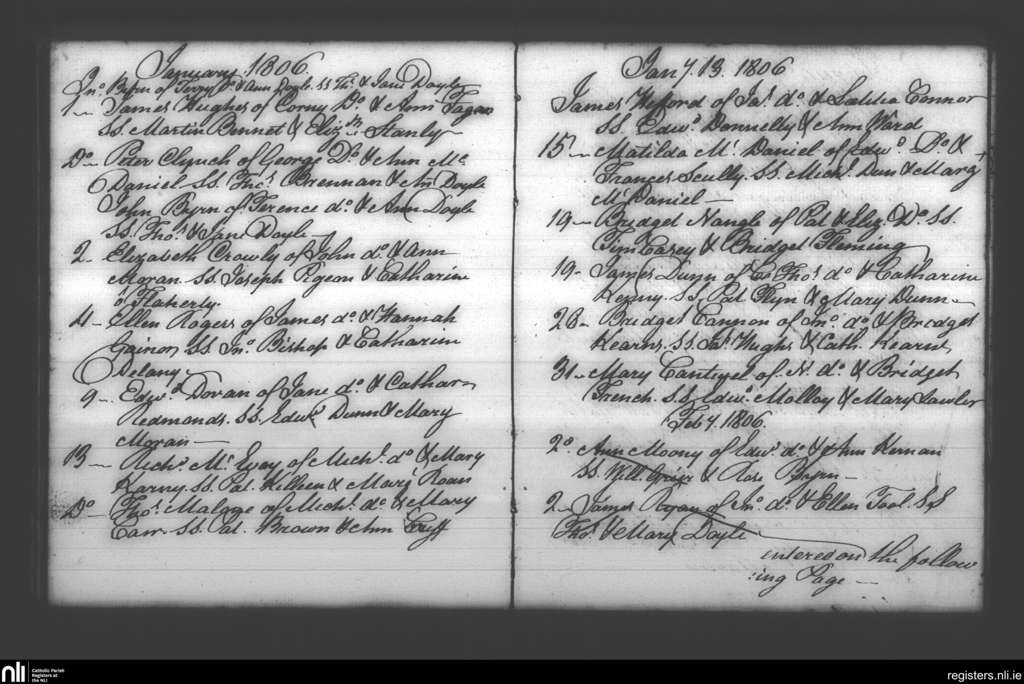 January 1806.
Jno. Byrn of Terry Do. & Ann Doyle. SS Ths. & Jane Doyle
1 - James Hughes of Corny Do. & Ann Fagan
SS. Martin Bennet & Elizth. Stanly
Do. Peter Clynch of George Do. & Ann Mc.
Daniel SS. Thos. Brennan & An Doyle
John Byrn of Terence do. & Ann Doyle
SS. Thos. & Jane Doyle
2 - Elizabeth Crowly of John do. & Ann
Moran SS. Joseph Pigeon & Catharine
o Flaherty.
4 - Ellen Rogers of James do. & Hannah
Gainor SS. Jno. Bishop & Catharine
Delany
9 - Edwd. Dovan of Jane do. & Cathar
Redmonds. SS. Edwd. Dunn & Mary
Moran
13 - Richd. Mc. Evay of Michl. do. & Mary
Karny SS. Pat. Killeen & Mary Roan
Do. - Thos. Malone of Michl. do. & Mary
Carr. SS. Pat. Brown & Ann
Jany. 13. 1806
James of Jas. do. & Connor
SS. Edwd. Donnelly & Ann Ward
15 - Matilda Mc. Daniel of Edwd. Do. &
Frances Scully. SS. Michl. Dun & Mary
Mc Daniel
19 - Bridget Nangle of Pat & Eliz. Do. SS.
Tim Carey & Bridget Fleming
19 - James Dunn of Thos. do. & Catharine
Kenny. SS. Pat Flyn & Mary Dunn
26 - Bridget Cannon of Jno. do. & Bridget
Kearns. SS. Jas. Hughs & Cath. Kearns
31 - Mary Cantwel of N. do. & Bridget
French. SS. Edwd. Molloy & Mary Lawler
Feby. 1806.
2o. Ann Moony of Edwd. do. & Ann Kernan
SS. Will. Grier & Rose Byrn
2 - James Ryan of Jno. do. & Ellen Tool SS
Thos. & Mary Doyle
entered on the follow
:ing Page
nli
Catholic Parish
Registers at
the NLI
registers.nli.ie